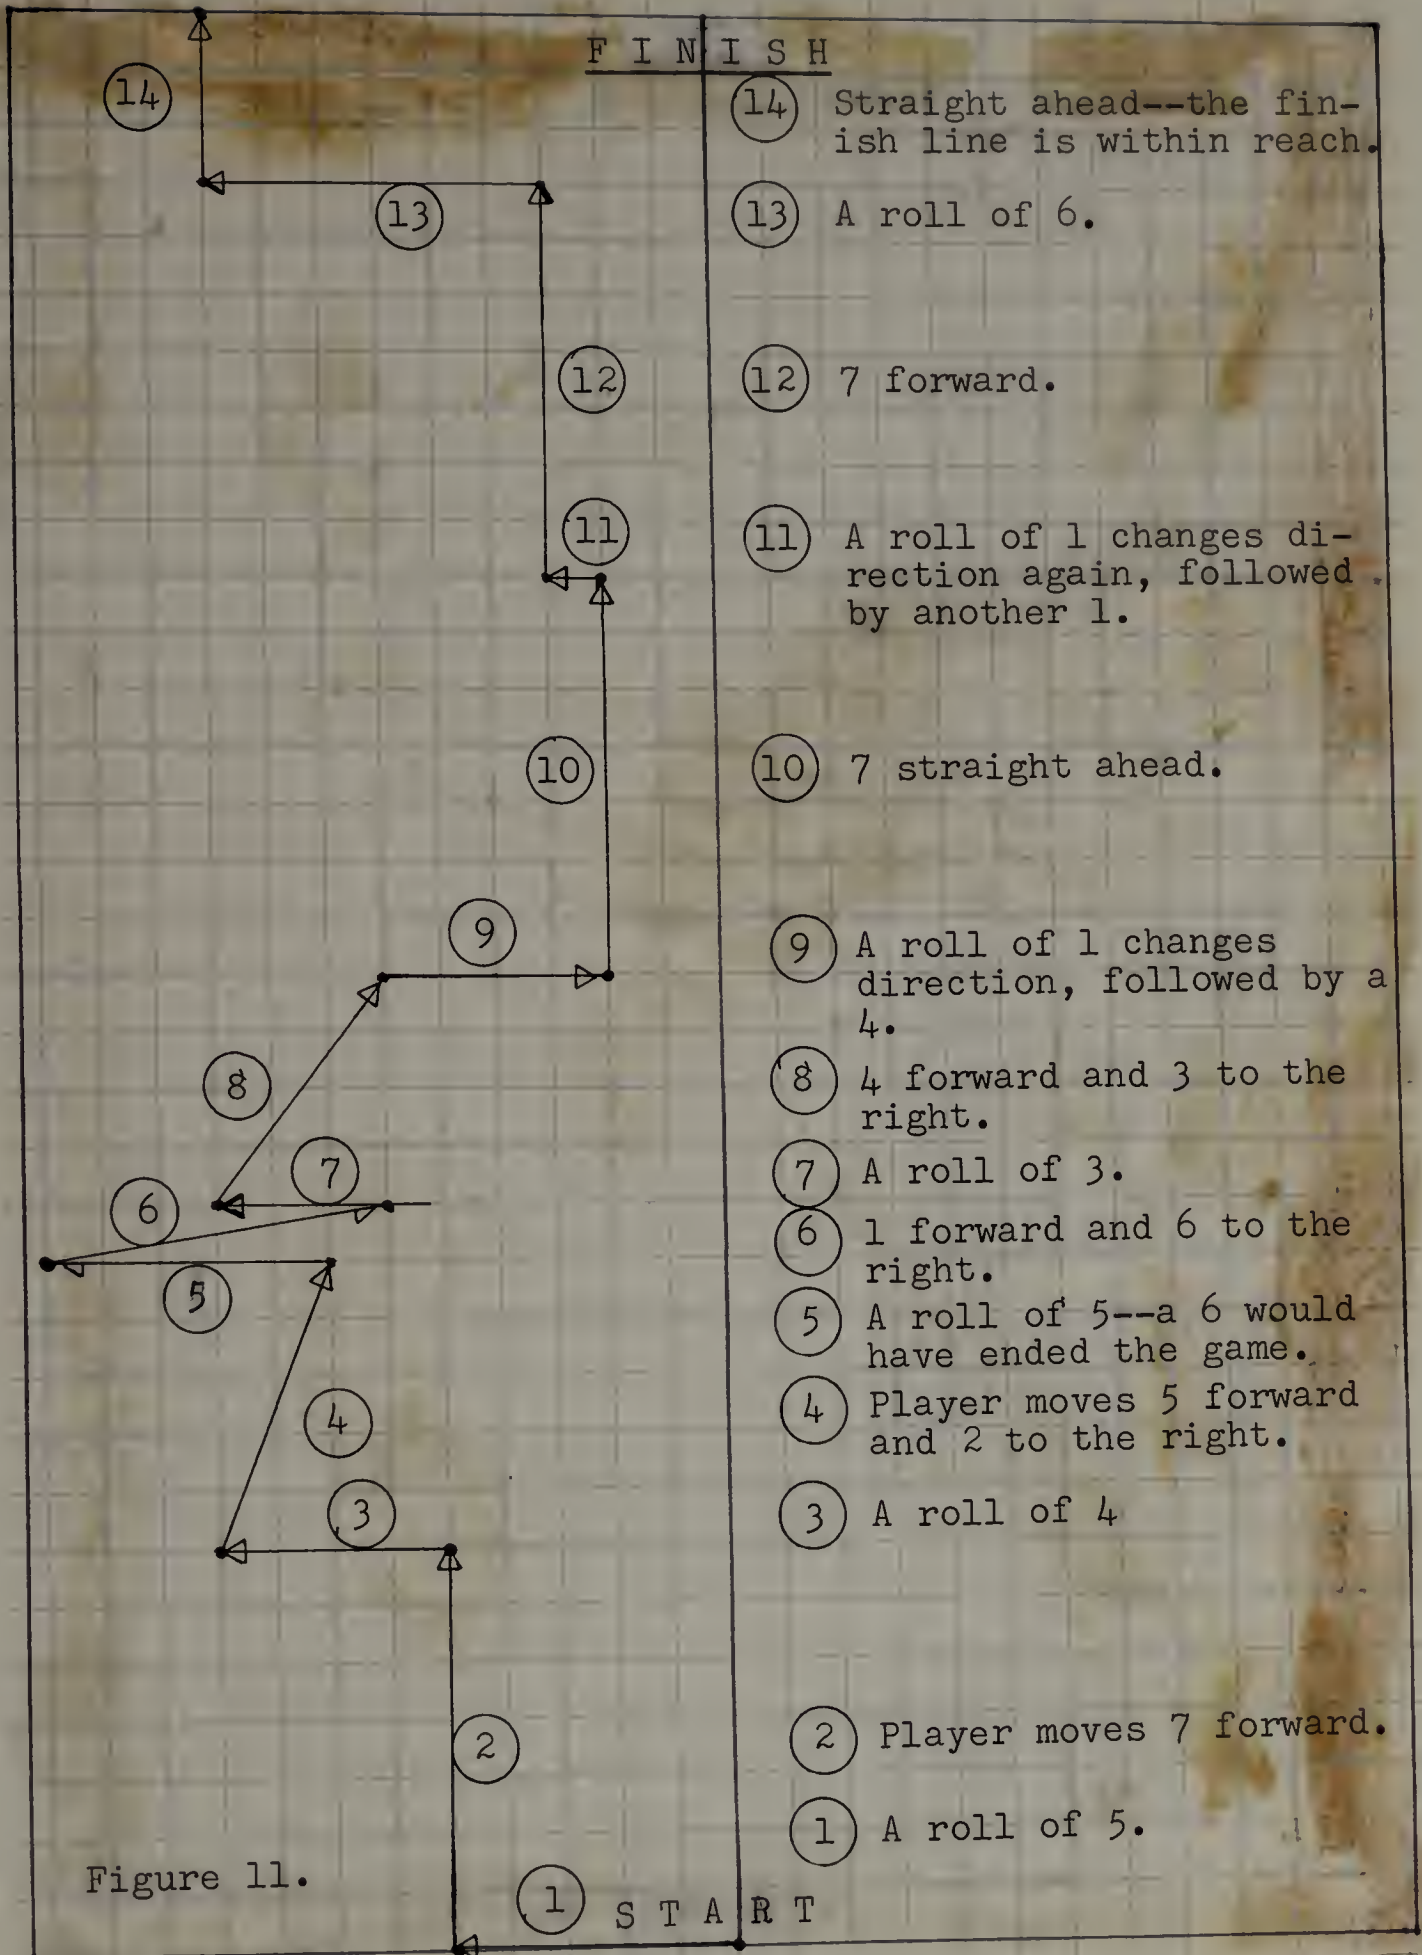 F I N I S H
14
14 Straight ahead--the fin-
ish line is within reach.
13
13 A roll of 6.
12
12 7 forward.
11
11 A roll of 1 changes di-
rection again, followed
by another 1.
10
10 7 straight ahead.
9
9 A roll of 1 changes
direction, followed by a
4.
8
8 4 forward and 3 to the
right.
7
7 A roll of 3.
6
6 1 forward and 6 to the
right.
5
5 A roll of 5--a 6 would
have ended the game.
4
4 Player moves 5 forward
and 2 to the right.
3
3 A roll of 4
2
2 Player moves 7 forward.
1 A roll of 5.
Figure 11.
1
S T A R T